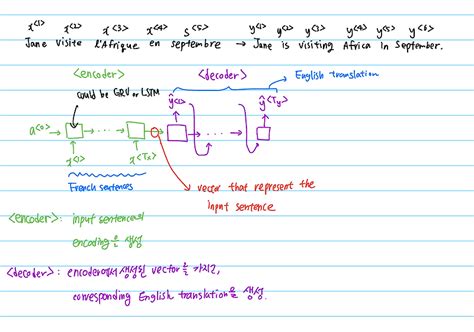 x<1> x<2> x<3> x<4> x<5> y<1> y<2> y<3> y<4> y<5> y<6>
Jane visite l'Afrique en septembre → Jane is visiting Africa in September.
<encoder> <decoder> English translation
could be GRU or LSTM
ŷ<1> ŷ<Ty>
a<0> → → ... → → → ...
x<1> x<Tx>
French sentences
vector that represent the
input sentence
<encoder> : input sentence의
encoding을 생성
<decoder> : encoder에서 생성된 vector를 가지고,
corresponding English translation을 생성.